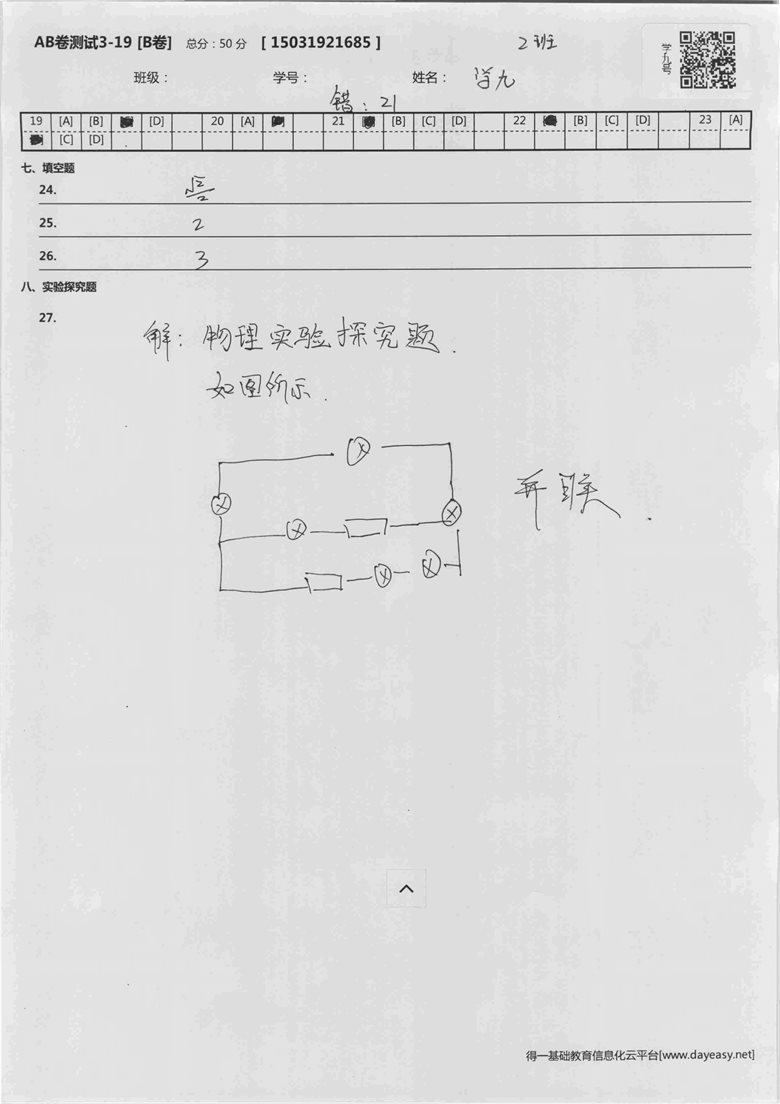 AB卷测试3-19 [B卷] 总分：50 分 [ 15031921685 ] 2班
学九号
班级： 学号： 姓名： 学九
错：21
19 [A] [B] [D] 20 [A] 21 [B] [C] [D] 22 [B] [C] [D] 23 [A]
[C] [D]
七、填空题
24. √2/2
25. 2
26. 3
八、实验探究题
27.
解：物理实验探究题.
如图所示.
并联.
得一基础教育信息化云平台[www.dayeasy.net]